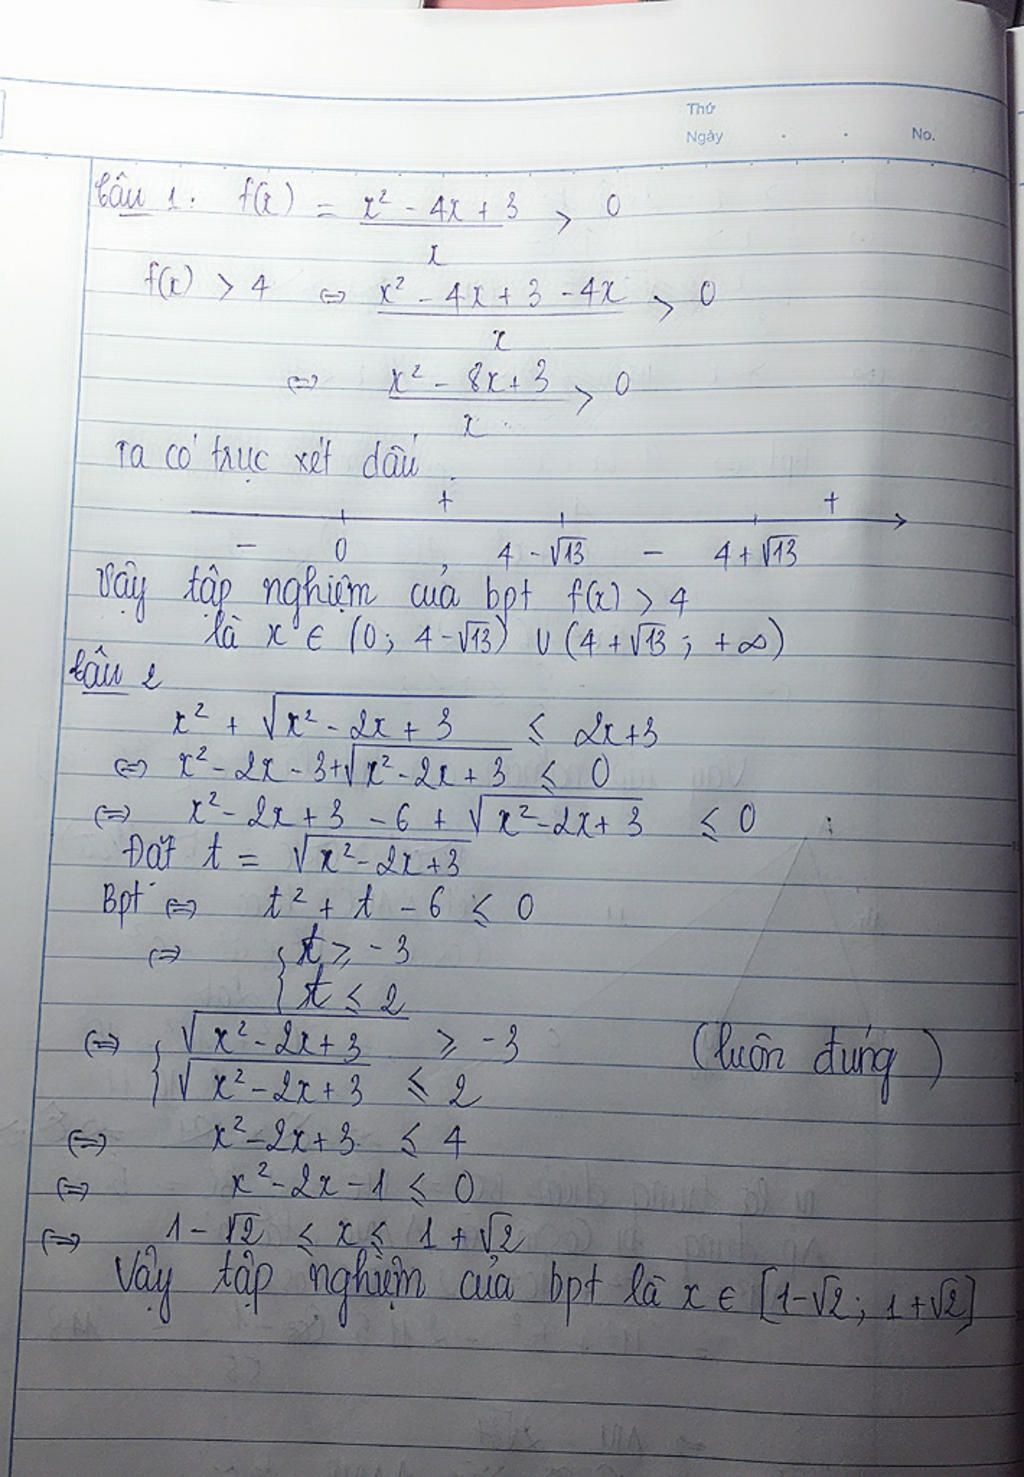 Thứ
Ngày . . No.
Câu 1. f(x) = x² - 4x + 3 / x > 0
f(x) > 4 ⇔ x² - 4x + 3 - 4x / x > 0
⇔ x² - 8x + 3 / x > 0
Ta có trục xét dấu
+ +
- 0 4 - √13 - 4 + √13
Vậy tập nghiệm của bpt f(x) > 4
là x ∈ (0; 4-√13) ∪ (4+√13; +∞)
Câu 2
x² + √(x² - 2x + 3) ≤ 2x+3
⇔ x² - 2x - 3 + √(x² - 2x + 3) ≤ 0
⇔ x² - 2x + 3 - 6 + √(x² - 2x + 3) ≤ 0
Đặt t = √(x² - 2x + 3)
Bpt ⇔ t² + t - 6 ≤ 0
⇔ { t ≥ -3
t ≤ 2
⇔ { √(x² - 2x + 3) ≥ -3 (luôn đúng)
√(x² - 2x + 3) ≤ 2
⇔ x² - 2x + 3 ≤ 4
⇔ x² - 2x - 1 ≤ 0
⇔ 1 - √2 ≤ x ≤ 1 + √2
Vậy tập nghiệm của bpt là x ∈ [1-√2; 1+√2]